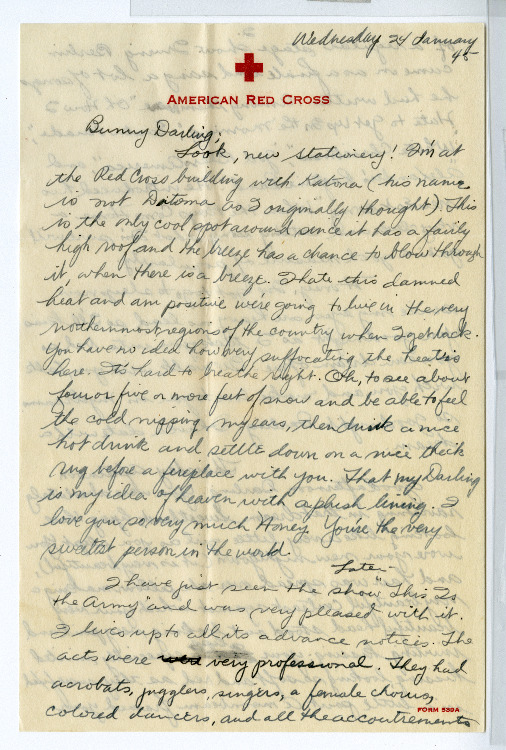 Wednesday 24 January
45
AMERICAN RED CROSS
Bunny Darling,
Look, new stationery! I'm at
the Red Cross building with Katona (his name
is not Datoma as I originally thought). This
is the only cool spot around since it has a fairly
high roof and the breeze has a chance to blow through
it, when there is a breeze. I hate this damned
heat and am positive we're going to live in the very
northernmost regions of the country when I get back.
You have no idea how very suffocating the heat is
here. It's hard to breathe right. Oh, to see about
four or five or more feet of snow and be able to feel
the cold nipping my ears, then drink a nice
hot drink and settle down on a nice thick
rug before a fireplace with you. That my Darling
is my idea of heaven with a plush lining. I
love you so very much Honey. You're the very
sweetest person in the world.
Later-
I have just seen the show "This Is
the Army" and was very pleased with it.
I lives up to all its advance notices. The
acts were very professional. They had
acrobats, jugglers, singers, a female chorus,
colored dancers, and all the accoutrements
FORM 539A